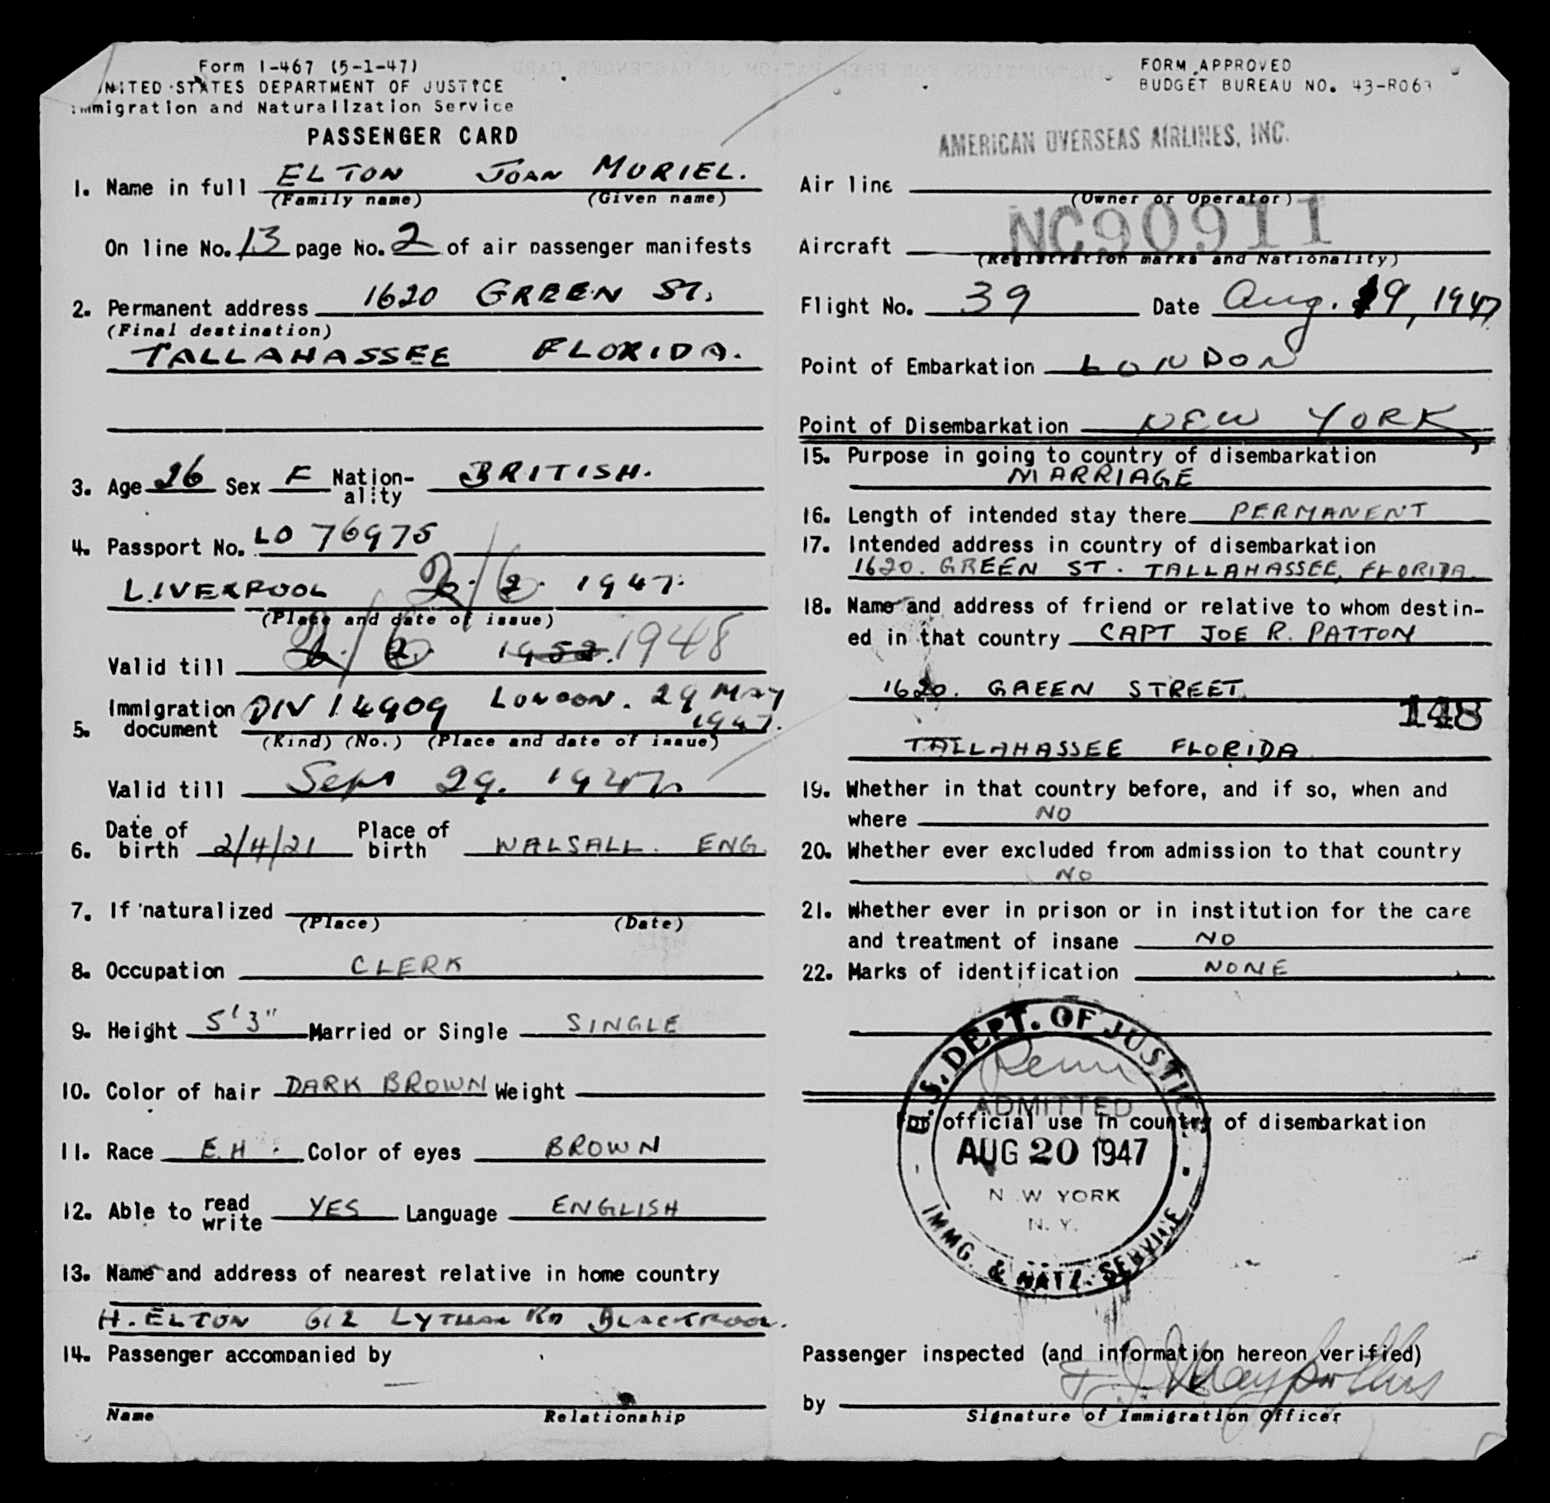 Form I-467 (5-1-47)
UNITED STATES DEPARTMENT OF JUSTICE
Immigration and Naturalization Service
PASSENGER CARD
1. Name in full ELTON JOAN MURIEL.
(Family name) (Given name)
On line No. 13 page No. 2 of air passenger manifests
2. Permanent address 1620 GREEN ST.
(Final destination)
TALLAHASSEE FLORIDA.
3. Age 26 Sex F Nation-ality BRITISH.
4. Passport No. LO 76975
LIVERPOOL 2/6 1947.
(Place and date of issue)
Valid till 2/6 1952. 1948
5. Immigration document DIV 14909 LONDON. 29 MAY 1947.
(Kind) (No.) (Place and date of issue)
Valid till Sept 29. 1947
6. Date of birth 2/4/21 Place of birth WALSALL. ENG.
7. If naturalized
(Place) (Date)
8. Occupation CLERK
9. Height 5'3" Married or Single SINGLE
10. Color of hair DARK BROWN Weight
11. Race E.H. Color of eyes BROWN
12. Able to read write YES Language ENGLISH
13. Name and address of nearest relative in home country
H. ELTON 612 LYTHAM RD BLACKPOOL.
14. Passenger accompanied by
Name Relationship
FORM APPROVED
BUDGET BUREAU NO. 43-R063
AMERICAN OVERSEAS AIRLINES, INC.
Air line
(Owner or Operator)
Aircraft NC90911
(Registration marks and Nationality)
Flight No. 39 Date Aug. 19, 1947
Point of Embarkation LONDON
Point of Disembarkation NEW YORK
15. Purpose in going to country of disembarkation
MARRIAGE
16. Length of intended stay there PERMANENT
17. Intended address in country of disembarkation
1620. GREEN ST. TALLAHASSEE, FLORIDA.
18. Name and address of friend or relative to whom destin-
ed in that country CAPT JOE R. PATTON
1620. GREEN STREET
148
TALLAHASSEE FLORIDA
19. Whether in that country before, and if so, when and
where NO
20. Whether ever excluded from admission to that country
NO
21. Whether ever in prison or in institution for the care
and treatment of insane NO
22. Marks of identification NONE
U.S. DEPT. OF JUSTICE
ADMITTED
official use in country of disembarkation
AUG 20 1947
N W YORK
N. Y.
IMMG. & NATZ. SERVICE
Passenger inspected (and information hereon verified)
by
Signature of Immigration Officer